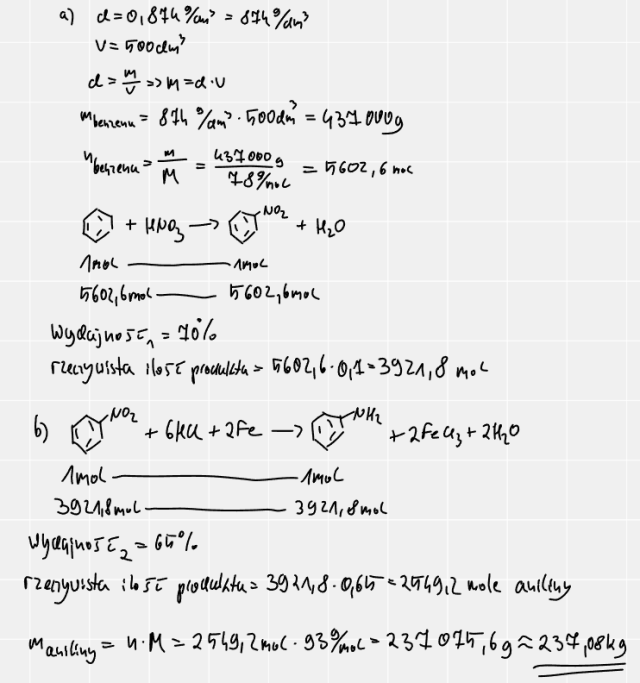 a) d = 0,874 g/cm³ = 874 g/dm³
V = 500 dm³
d = m/V => m = d · V
m benzenu = 874 g/dm³ · 500 dm³ = 437 000 g
n benzenu = m/M = 437000 g / 78 g/mol = 5602,6 mol
+ HNO₃ → NO₂ + H₂O
1 mol 1 mol
5602,6 mol 5602,6 mol
Wydajność₁ = 70%
rzeczywista ilość produktu = 5602,6 · 0,7 = 3921,8 mol
b) NO₂ + 6HCl + 2Fe → NH₂ + 2FeCl₃ + 2H₂O
1 mol 1 mol
3921,8 mol 3921,8 mol
Wydajność₂ = 65%
rzeczywista ilość produktu = 3921,8 · 0,65 = 2549,2 mole aniliny
m aniliny = n · M = 2549,2 mol · 93 g/mol = 237 075,6 g ≈ 237,08 kg